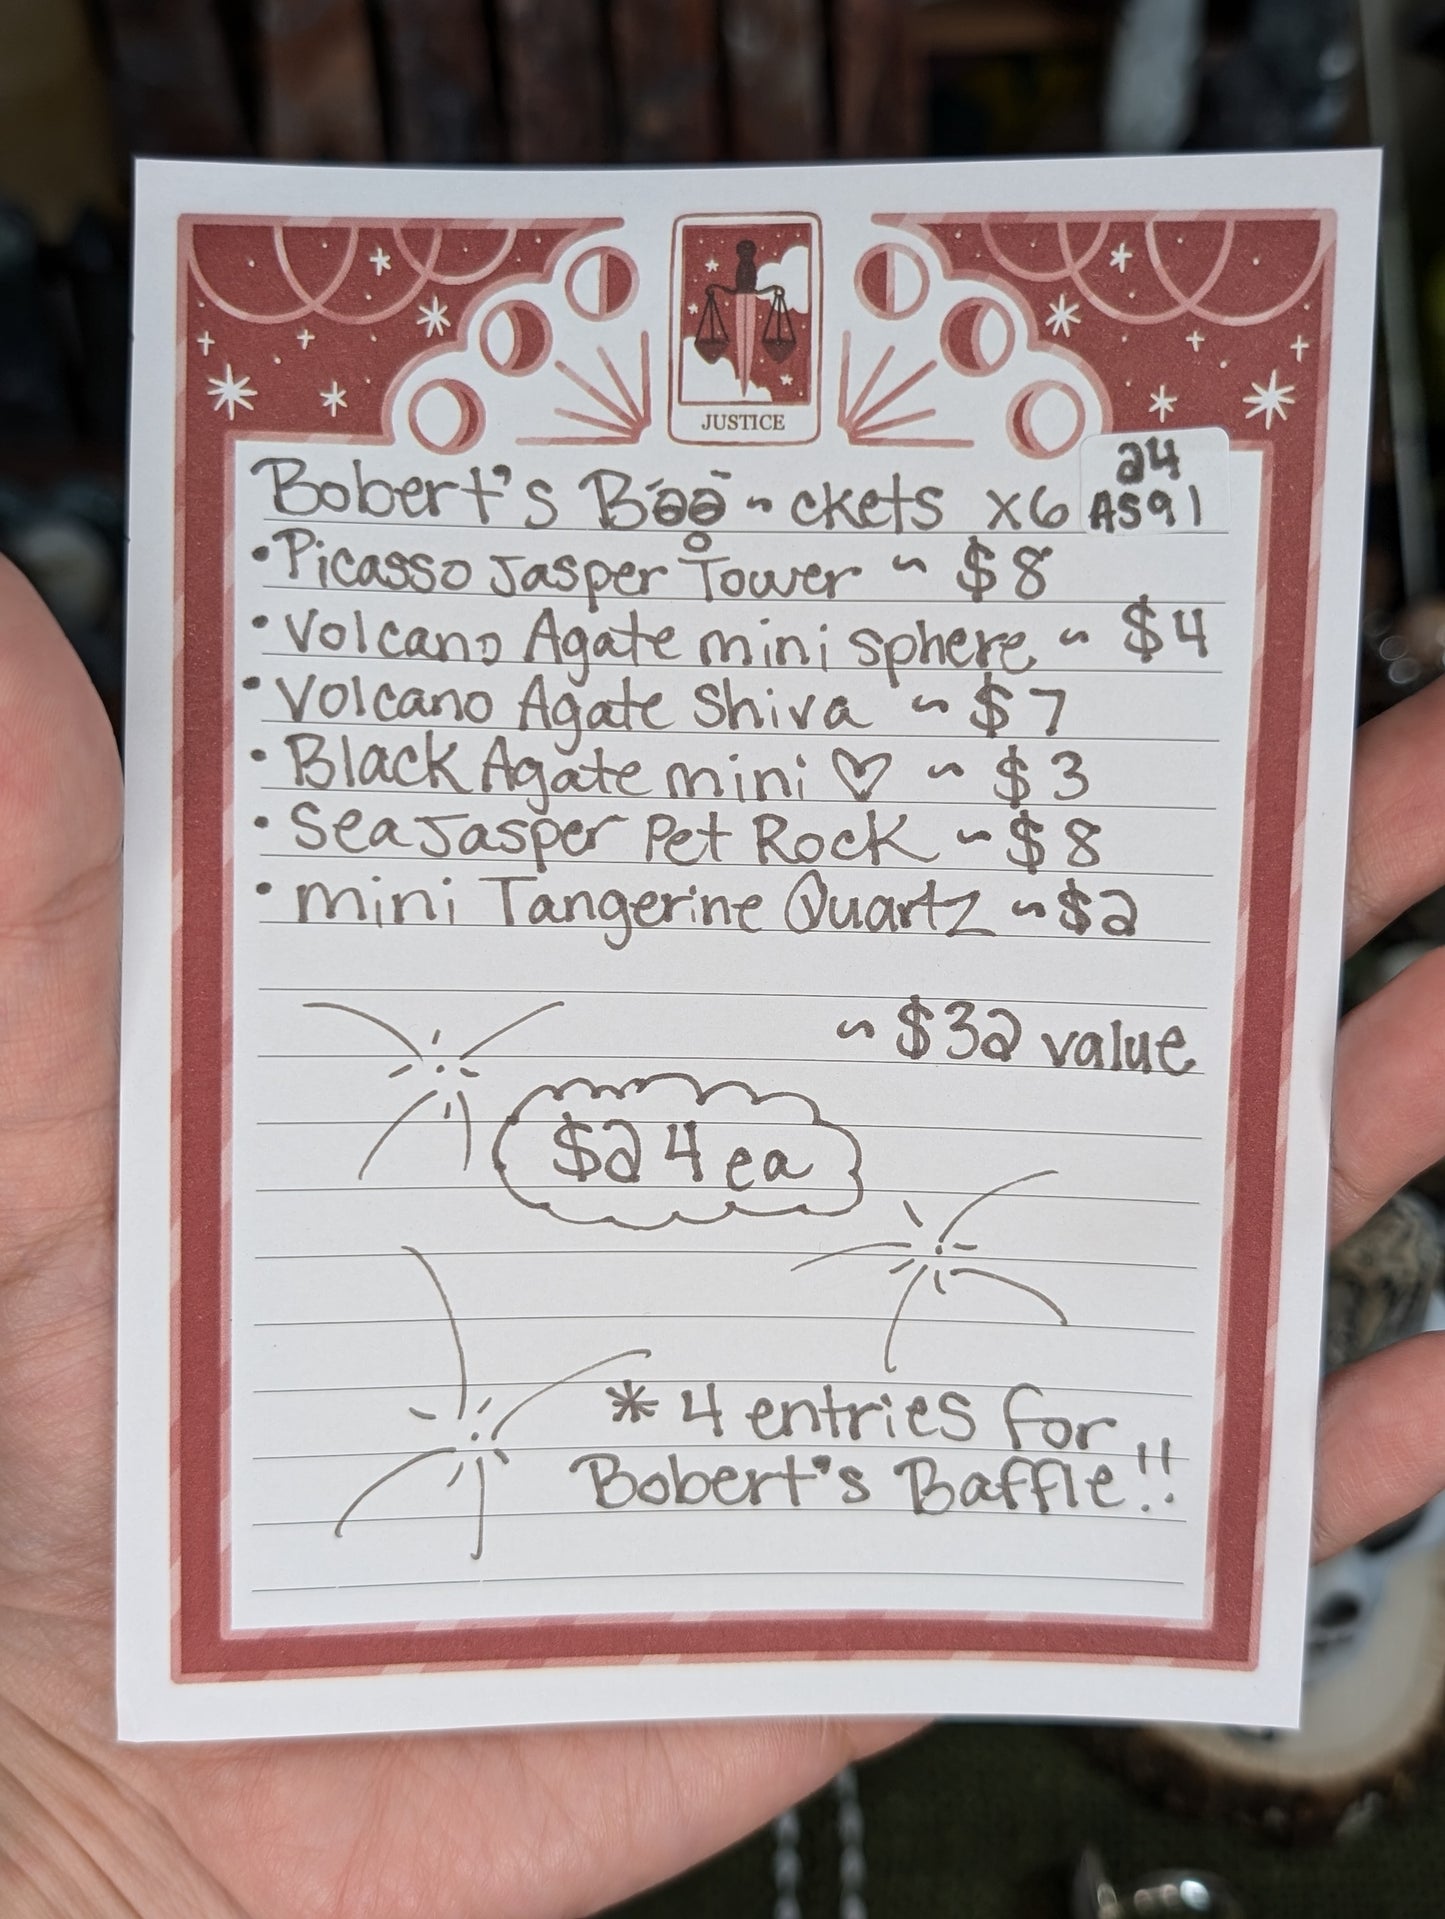 JUSTICE
24
AS91
Bobert's Boo~ckets x6
•Picasso Jasper Tower ~ $8
•Volcano Agate mini sphere ~ $4
•Volcano Agate Shiva ~ $7
•Black Agate mini ♡ ~ $3
•Sea Jasper Pet Rock ~ $8
•mini Tangerine Quartz ~ $2
~ $32 value
$24 ea
* 4 entries for
Bobert's Baffle!!